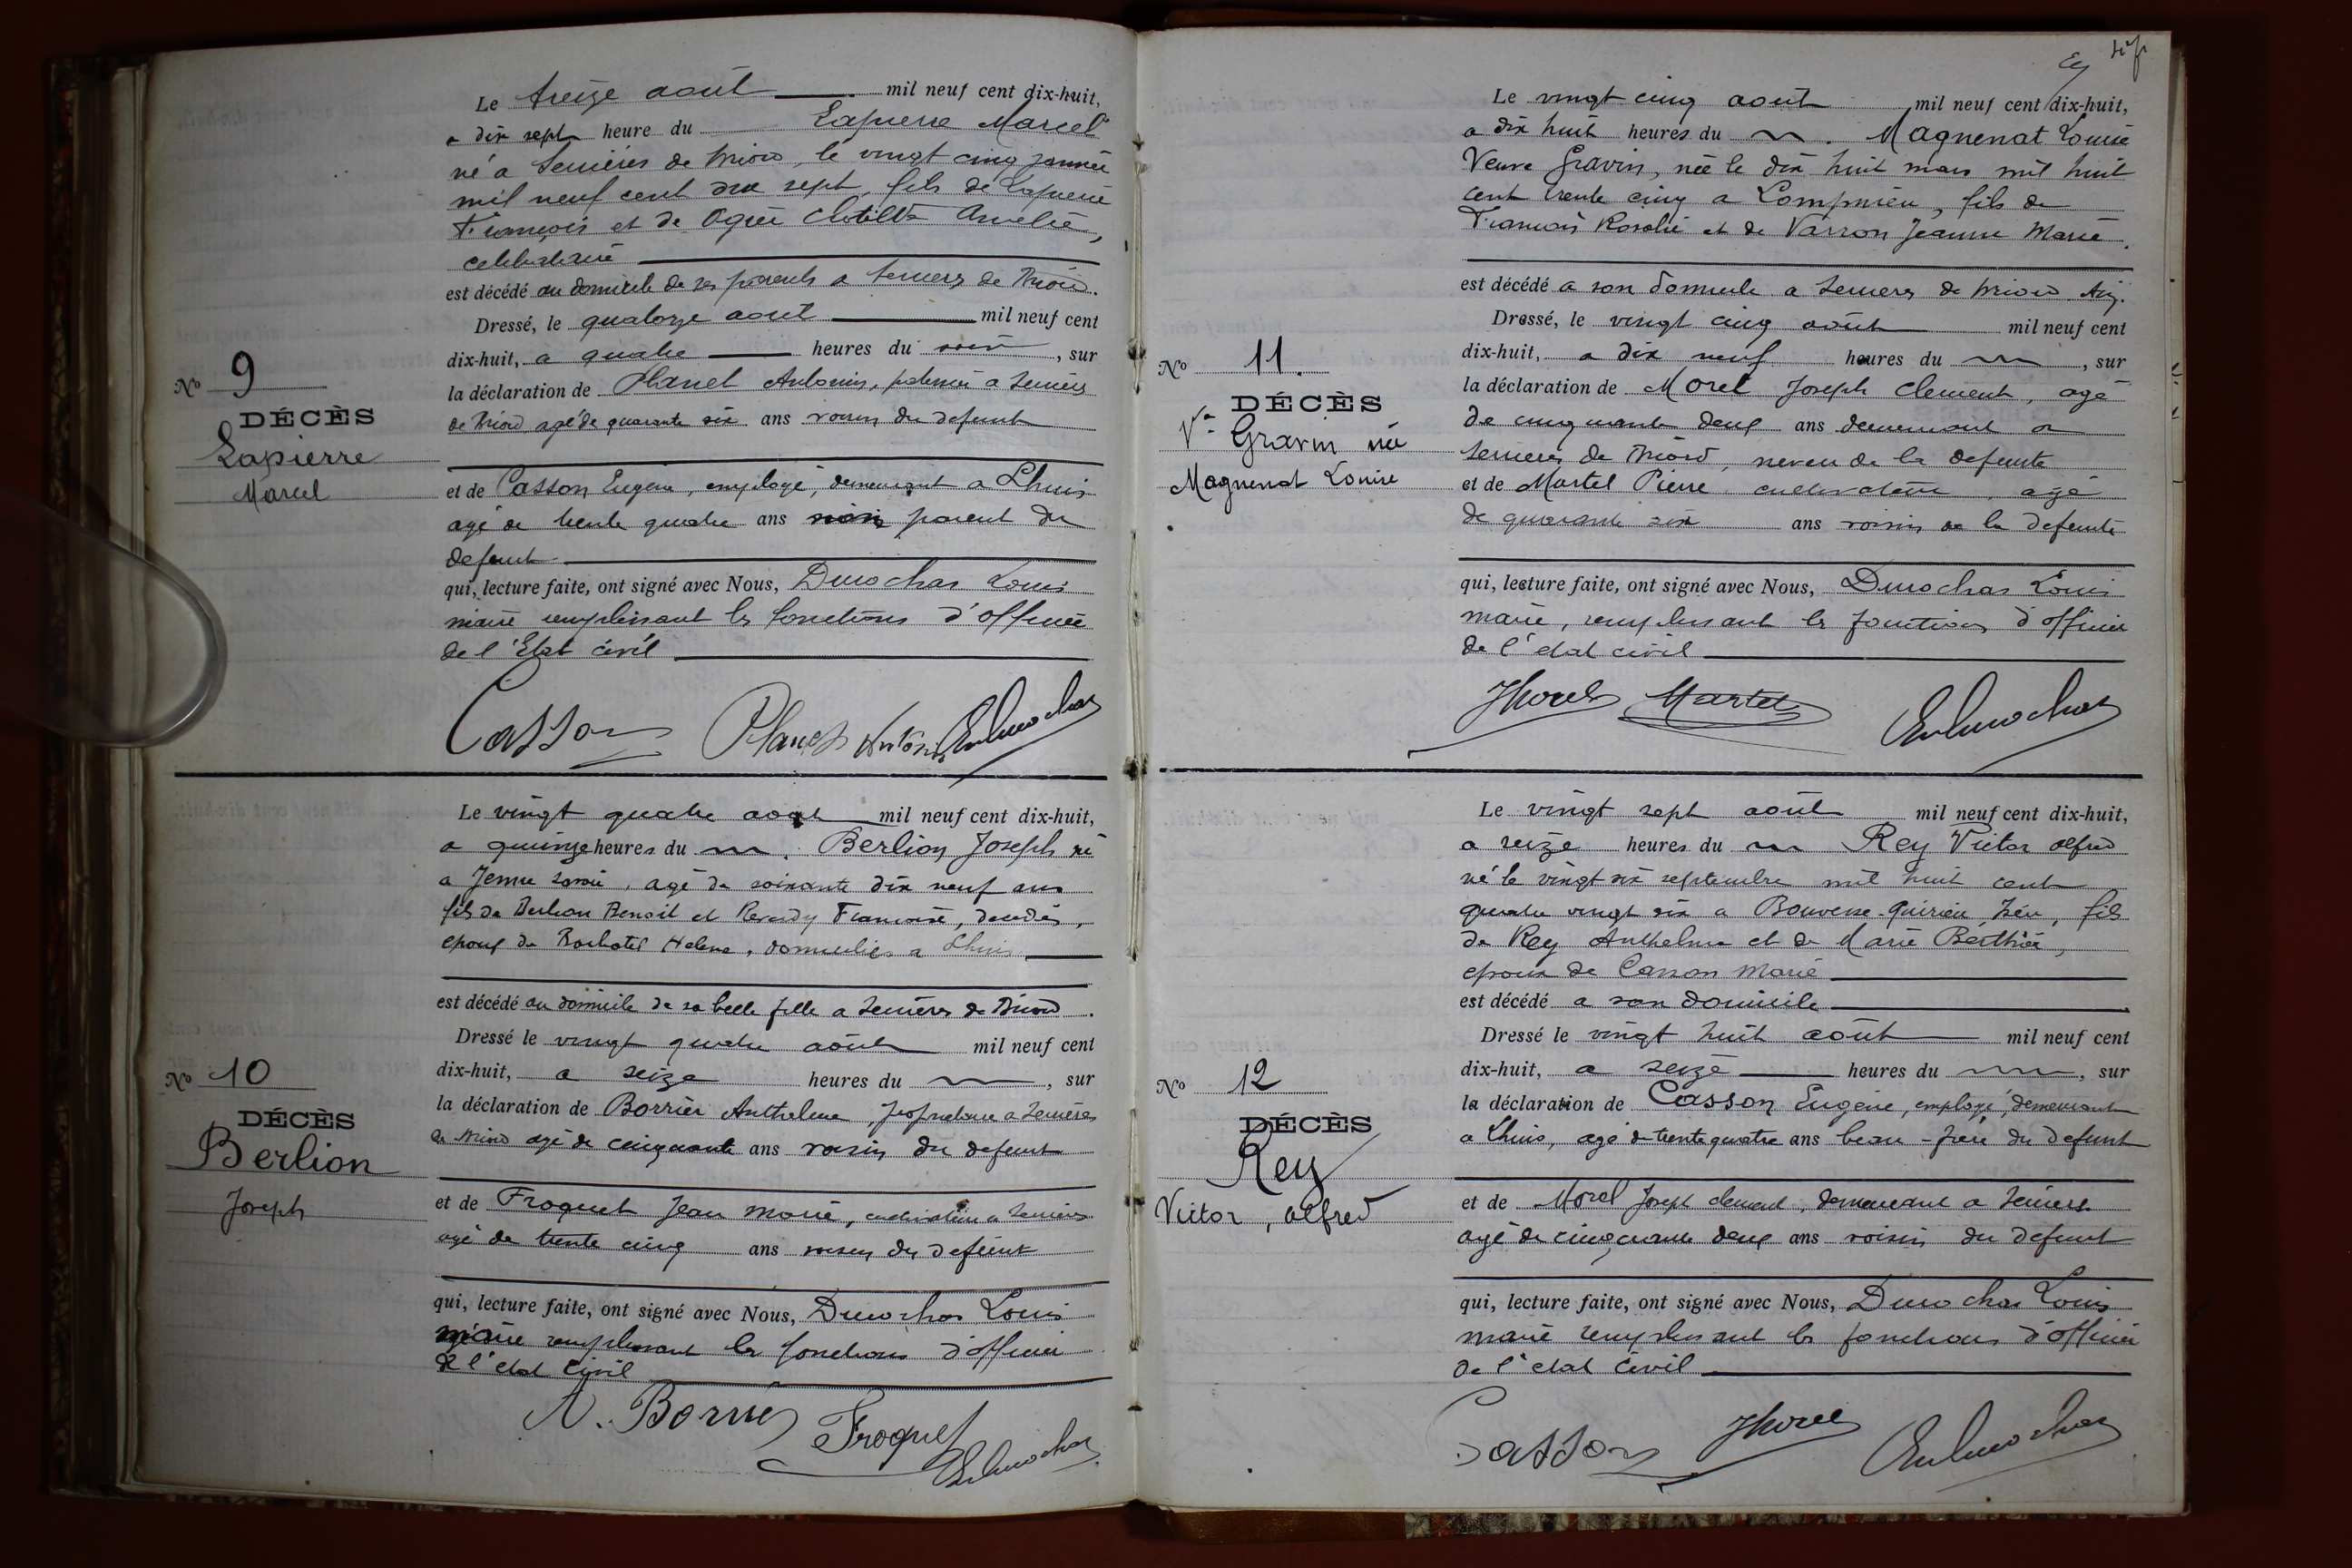 Le treize août mil neuf cent dix-huit,
a dix sept heure du Lapierre Marcel
né a Serrières de Briord, le vingt cinq janvier
mil neuf cent dix sept, fils de Lapierre
François et de Clotilde Amelie,
celibataire
est décédé au domicile de ses parents a Serrières de Briord.
Dressé, le quatorze août mil neuf cent
dix-huit, a quatre heures du soir, sur
la déclaration de Planet Antonin, a Serrières
de Briord agé de quarante six ans voisin du defunt
No 9
DÉCÈS
Lapierre
Marcel
et de Casson Eugène, employé, demeurant a Lhuis
agé de trente quatre ans parent du
defunt
qui, lecture faite, ont signé avec Nous, Durochas Louis
maire remplissant les fonctions d'officier
de l'Etat civil
Casson Planet Antonin Durochas
Le vingt quatre août mil neuf cent dix-huit,
a quinze heures du Berlion Joseph né
a Jenne Savoie, agé de soixante dix neuf ans
fils de Berlion Benoit et Françoise, décédés,
epoux de Helene, domicilié a Lhuis
est décédé au domicile de sa belle fille a Serrières de Briord.
Dressé le vingt quatre août mil neuf cent
dix-huit, a seize heures du, sur
la déclaration de Borrier Anthelme, proprietaire a Serrières
de Briord agé de cinquante ans voisin du defunt
No 10
DÉCÈS
Berlion
Joseph
et de Froquet Jean Marie, cultivateur a Serrières
agé de trente cinq ans voisin du defunt
qui, lecture faite, ont signé avec Nous, Durochas Louis
maire remplissant les fonctions d'officier
de l'etat civil
A. Borrier Froquet Durochas
Le vingt cinq août mil neuf cent dix-huit,
a dix huit heures du. Magnenat Louise
Veuve Gravin, née le dix huit mars mil huit
cent trente cinq a Lompnieu, fils de
François Rosalie et de Varron Jeanne Marie.
est décédé a son domicile a Serrières de Briord Ain.
Dressé, le vingt cinq août mil neuf cent
dix-huit, a dix neuf heures du, sur
la déclaration de Morel Joseph Clement, agé
de cinquante deux ans demeurant a
Serrières de Briord, neveu de la defunte
No 11.
DÉCÈS
Vve Gravin née
Magnenat Louise
et de Martel Pierre cultivateur, agé
de quarante six ans voisin de la defunte
qui, lecture faite, ont signé avec Nous, Durochas Louis
maire, remplissant les fonctions d'officier
de l'etat civil
JMorel Martel Durochas
Le vingt sept août mil neuf cent dix-huit,
a seize heures du Rey Victor alfred
né le vingt six septembre mil huit cent
quatre vingt six a Bouvesse-Quirieu Isère, fils
de Rey Anthelme et de Marie Berthier,
epoux de Casson Marie
est décédé a son domicile
Dressé le vingt huit août mil neuf cent
dix-huit, a seize heures du, sur
la déclaration de Casson Eugène, employé, demeurant
a Lhuis, agé de trente quatre ans beau-frère du defunt
No 12
DÉCÈS
Rey
Victor, alfred
et de Morel Joseph clement, demeurant a Serrières
agé de cinquante deux ans voisin du defunt
qui, lecture faite, ont signé avec Nous, Durochas Louis
maire remplissant les fonctions d'officier
de l'etat civil
Casson JMorel Durochas